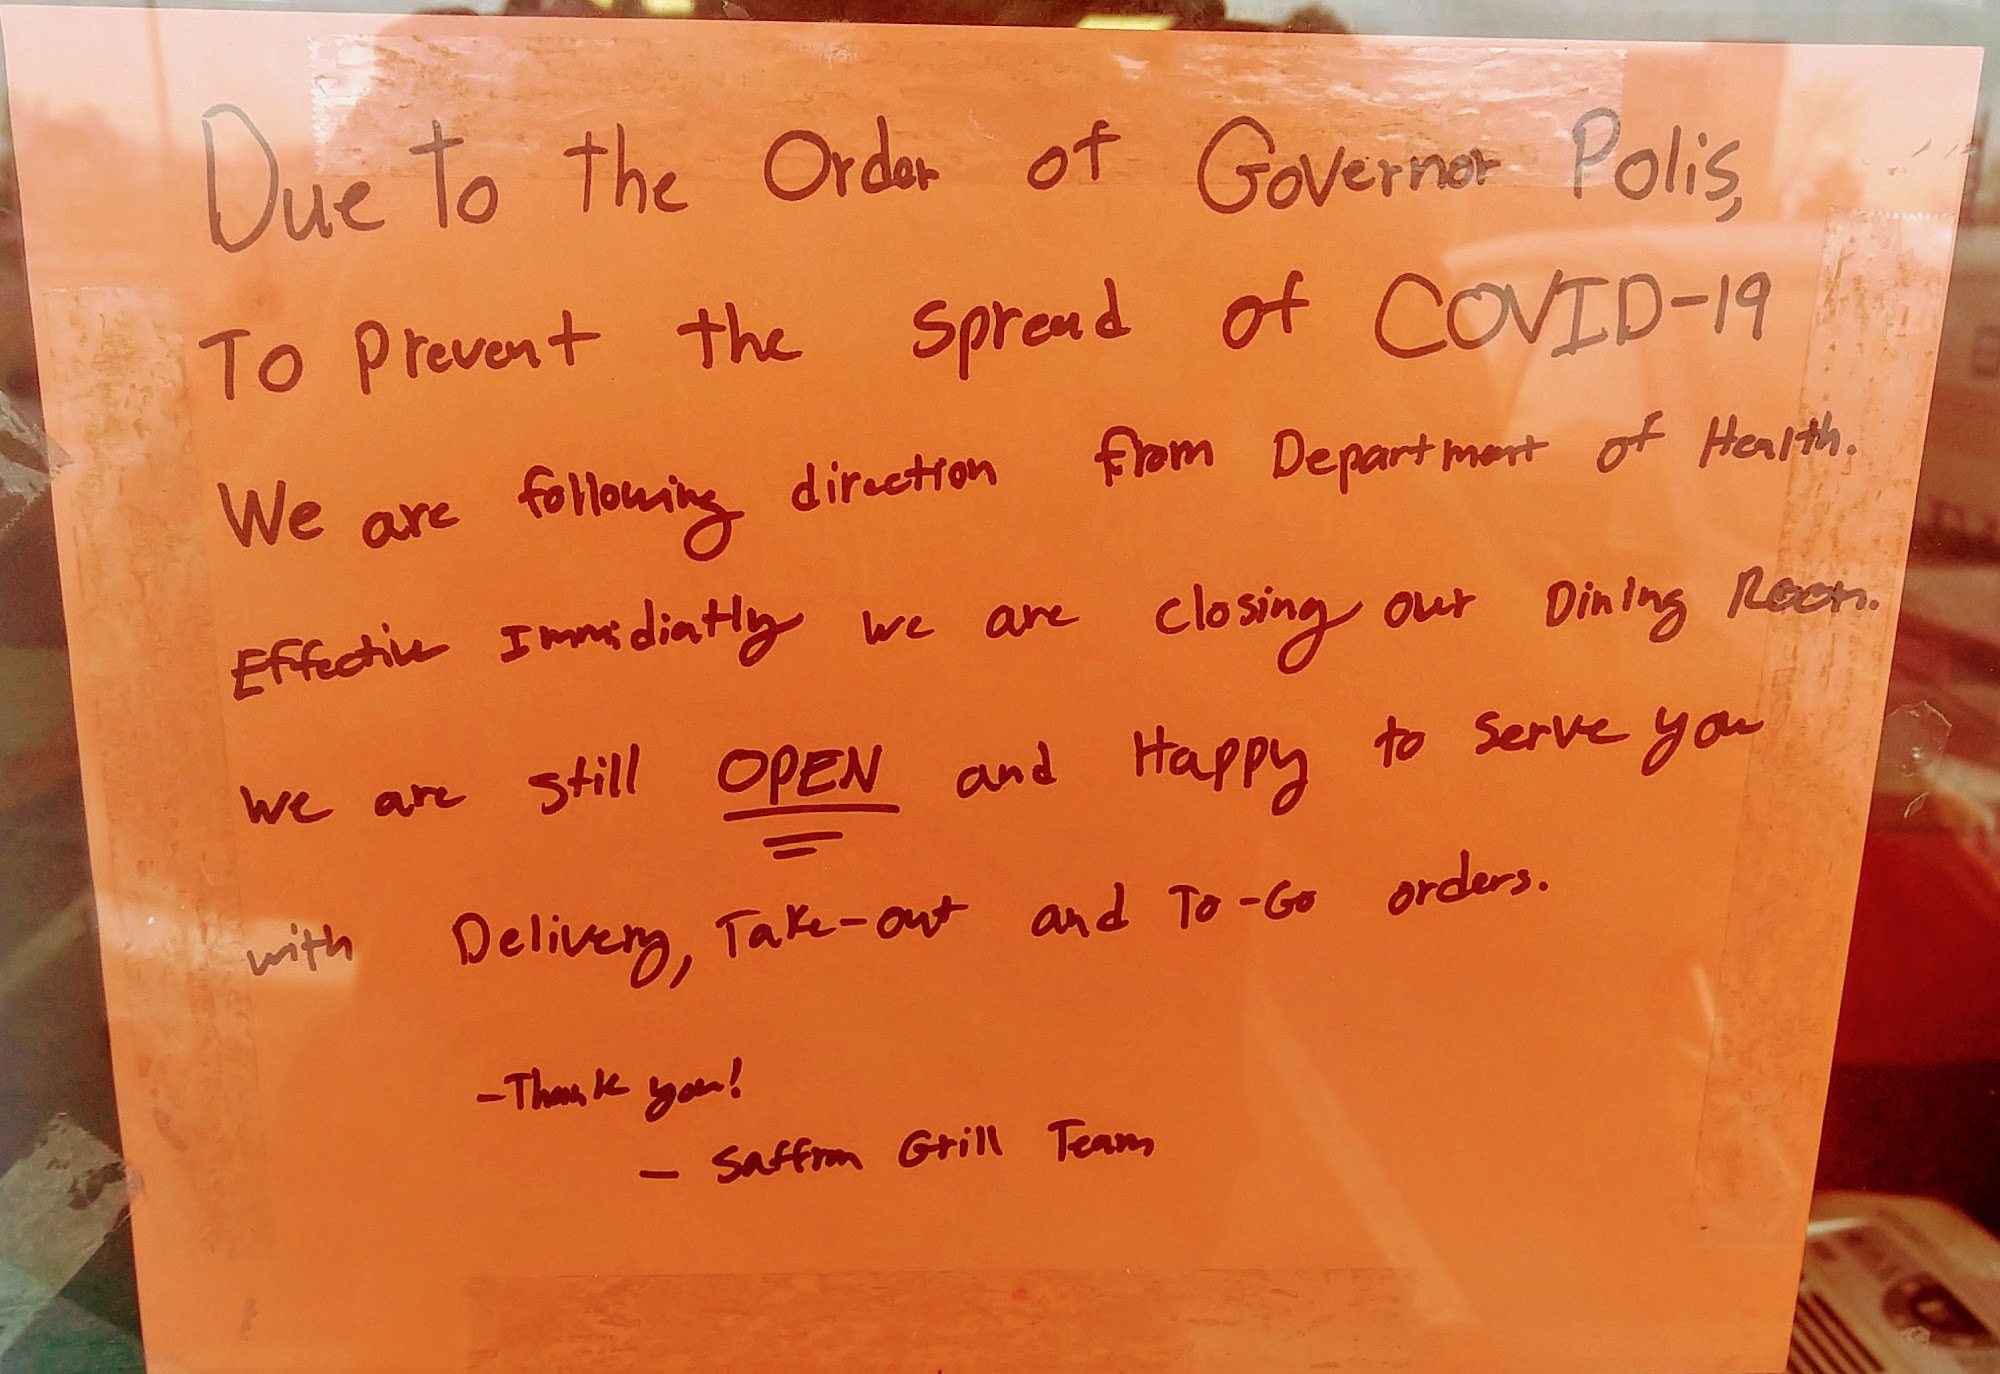 Due to the Order of Governor Polis,
To Prevent the spread of COVID-19
We are following direction from Department of Health.
Effective Immidiatly we are closing our Dining Room.
We are still OPEN and Happy to serve you
with Delivery, Take-out and To-Go orders.
-Thank you!
- Saffron Grill Team